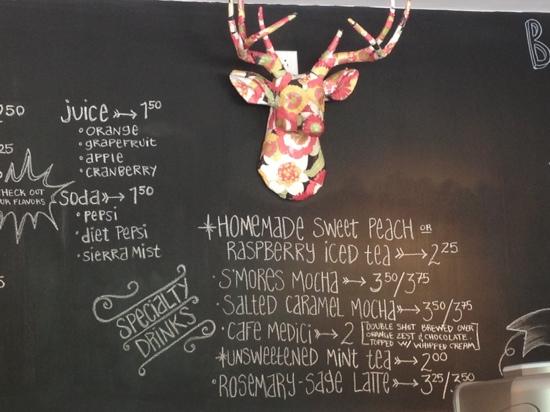 250
25
CHECK OUT
UR FLAVORS
Juice → 1 50
• ORANGE
• GRAPEFRUIT
• APPLE
• CRANBERRY
SODA → 1 50
• PEPSI
• DIET PEPSI
• SIERRA MIST
SPECIALTY
DRINKS
B
* HOMEMADE SWEET PEACH OR
RASPBERRY ICED TEA → 2 25
• S'MORES MOCHA → 3 50/3 75
• SALTED CARAMEL MOCHA → 3 50/3 75
• CAFE MEDICI → 2 [DOUBLE SHOT BREWED OVER
ORANGE ZEST & CHOCOLATE.
TOPPED W/ WHIPPED CREAM]
* UNSWEETENED MINT TEA → 2 00
• ROSEMARY-SAGE LATTE → 3 25/3 50